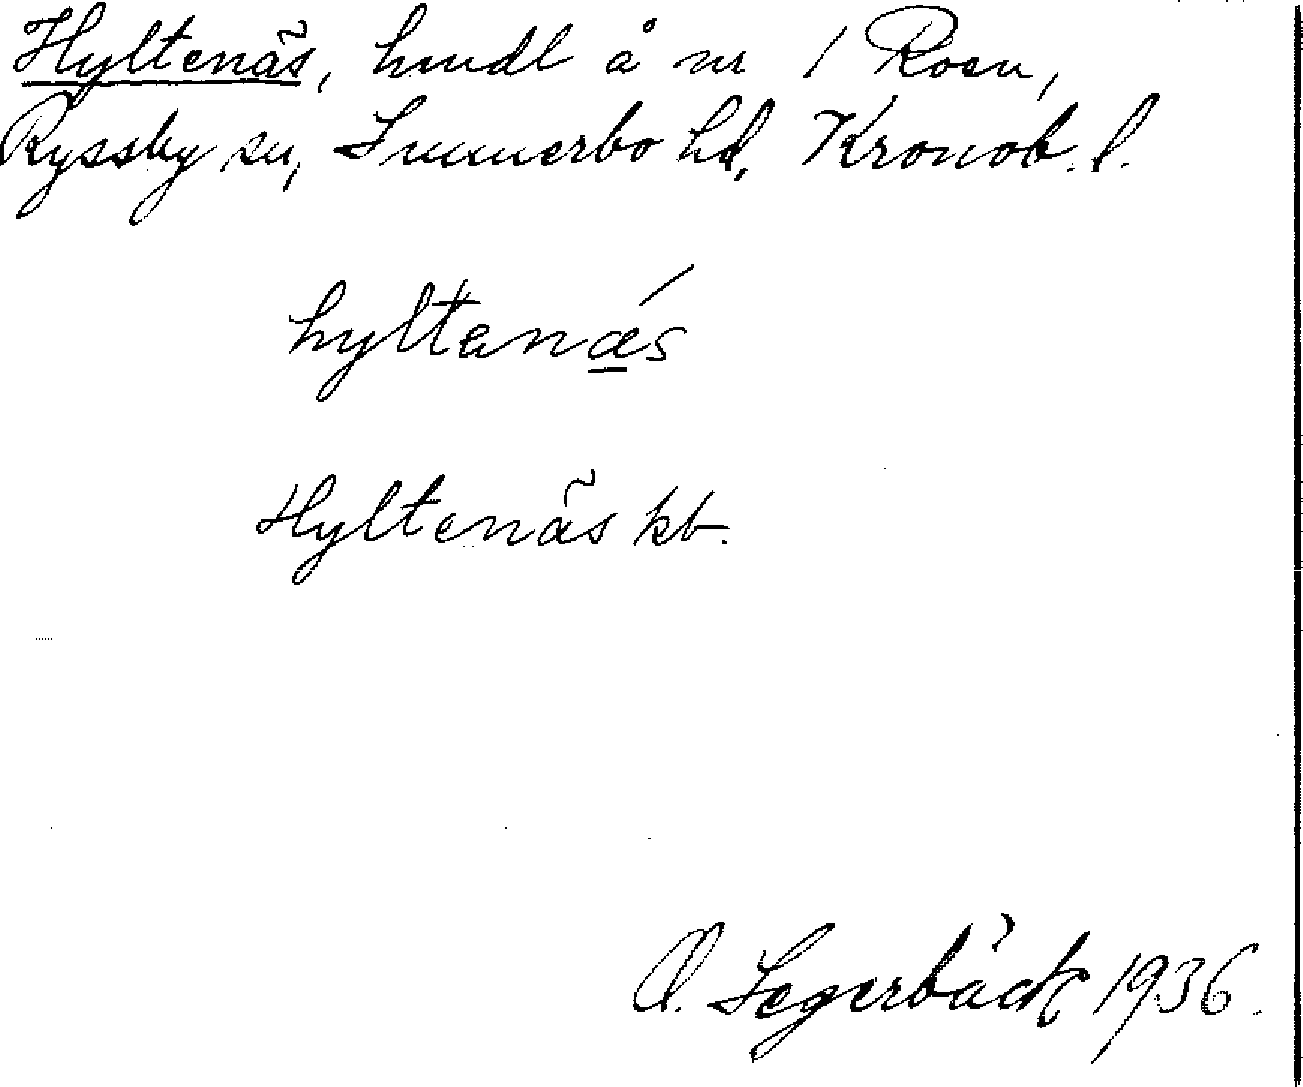 Hyltenäs, hmdl å nr 1 Rosn,
Ryssby sn, Sunnerbo hd, Kronob. l.
hyltanǽ̲s
Hyltenäs kb.
A. Segerbäck 1936.